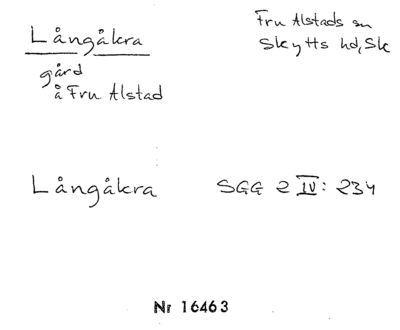 Långåkra
Fru Alstads sn
Skytts hd, Sk
gård
å Fru Alstad
Långåkra SGG 2 IV: 234
Nr 16463